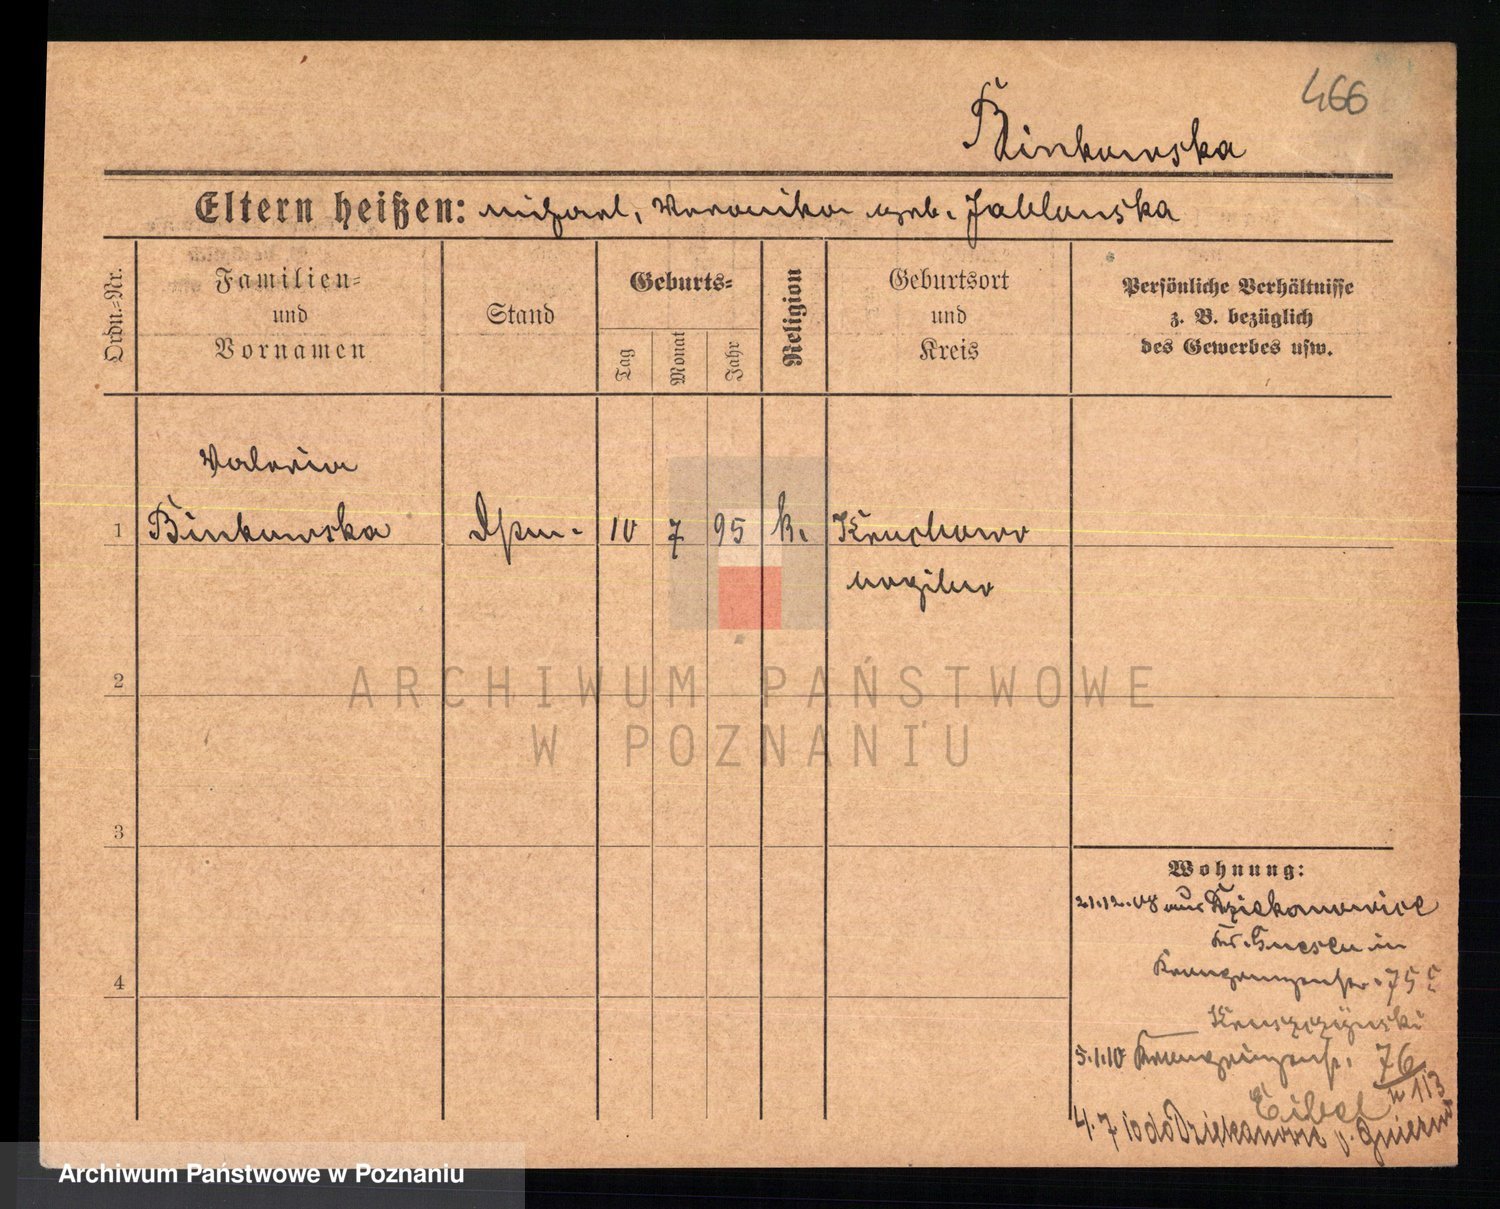 466
Binkowska
Eltern heißen: Michael, Veronika geb. Jablonska
Ordn.=Nr.
Familien=
und
Vornamen
Stand
Geburts=
Tag
Monat
Jahr
Religion
Geburtsort
und
Kreis
Persönliche Verhältnisse
z. B. bezüglich
des Gewerbes usw.
Valeria
1 Binkowska 10 7 95 k. Kruchowo
Mogilno
2
3
4
Wohnung:
21.12.08 aus Dziekanowice
Kr. Gnesen in
Kronprinzenstr. 75
Kruszczynski
5.1.10 Kronprinzenstr. 76
W 113
Eibel
4.7 10 do Dziekanowic p. Gniezno
ARCHIWUM PAŃSTWOWE
W POZNANIU
Archiwum Państwowe w Poznaniu